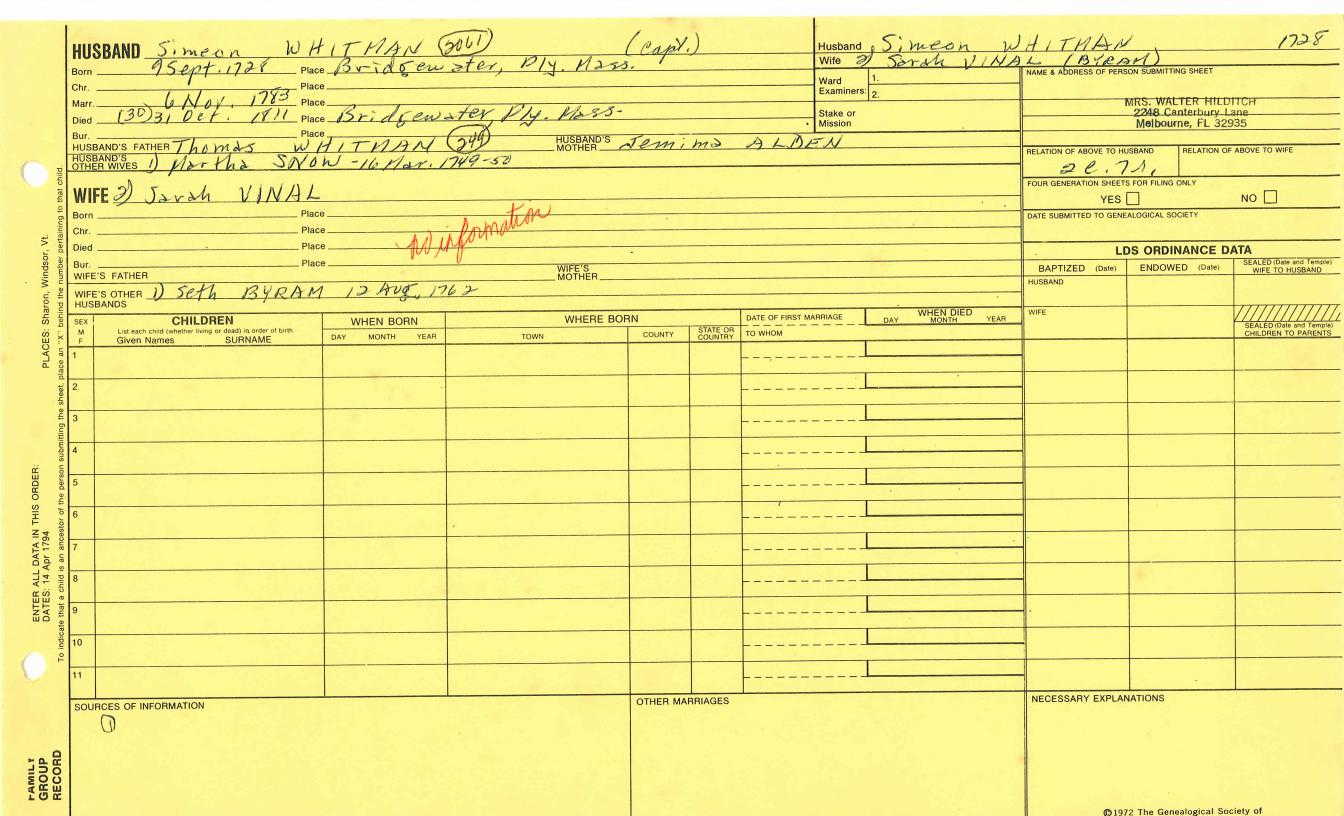 HUSBAND Simeon WHITMAN (2061) (Capt.)
Born 9 Sept. 1728 Place Bridgewater, Ply. Mass.
Chr. Place
Marr. 6 Nov. 1783 Place
Died (30) 31 Oct. 1811 Place Bridgewater, Ply. Mass.
Bur. Place
HUSBAND'S FATHER Thomas WHITMAN (244) HUSBAND'S MOTHER Jemima ALDEN
HUSBAND'S OTHER WIVES 1) Martha SNOW - 16 Mar. 1749-50
Husband Simeon WHITMAN 1728
Wife 2) Sarah VINAL (BYRAM)
Ward 1.
Examiners: 2.
Stake or Mission
NAME & ADDRESS OF PERSON SUBMITTING SHEET
MRS. WALTER HILDITCH
2248 Canterbury Lane
Melbourne, FL 32935
RELATION OF ABOVE TO HUSBAND RELATION OF ABOVE TO WIFE
FOUR GENERATION SHEETS FOR FILING ONLY
YES NO
DATE SUBMITTED TO GENEALOGICAL SOCIETY
WIFE 2) Sarah VINAL
Born Place
Chr. Place
Died Place
Bur. Place
no information
WIFE'S FATHER WIFE'S MOTHER
WIFE'S OTHER HUSBANDS 1) Seth BYRAM 12 Aug. 1762
LDS ORDINANCE DATA
BAPTIZED (Date) ENDOWED (Date) SEALED (Date and Temple) WIFE TO HUSBAND
HUSBAND
WIFE
SEALED (Date and Temple) CHILDREN TO PARENTS
SEX M F
CHILDREN
List each child (whether living or dead) in order of birth
Given Names SURNAME
WHEN BORN
DAY MONTH YEAR
WHERE BORN
TOWN COUNTY STATE OR COUNTRY
DATE OF FIRST MARRIAGE
TO WHOM
WHEN DIED
DAY MONTH YEAR
1
2
3
4
5
6
7
8
9
10
11
SOURCES OF INFORMATION
1
OTHER MARRIAGES
NECESSARY EXPLANATIONS
©1972 The Genealogical Society of
PLACES: Sharon, Windsor, Vt.
ENTER ALL DATA IN THIS ORDER:
DATES: 14 Apr 1794
To indicate that a child is an ancestor of the person submitting the sheet, place an "X" behind the number pertaining to that child.
FAMILY GROUP RECORD